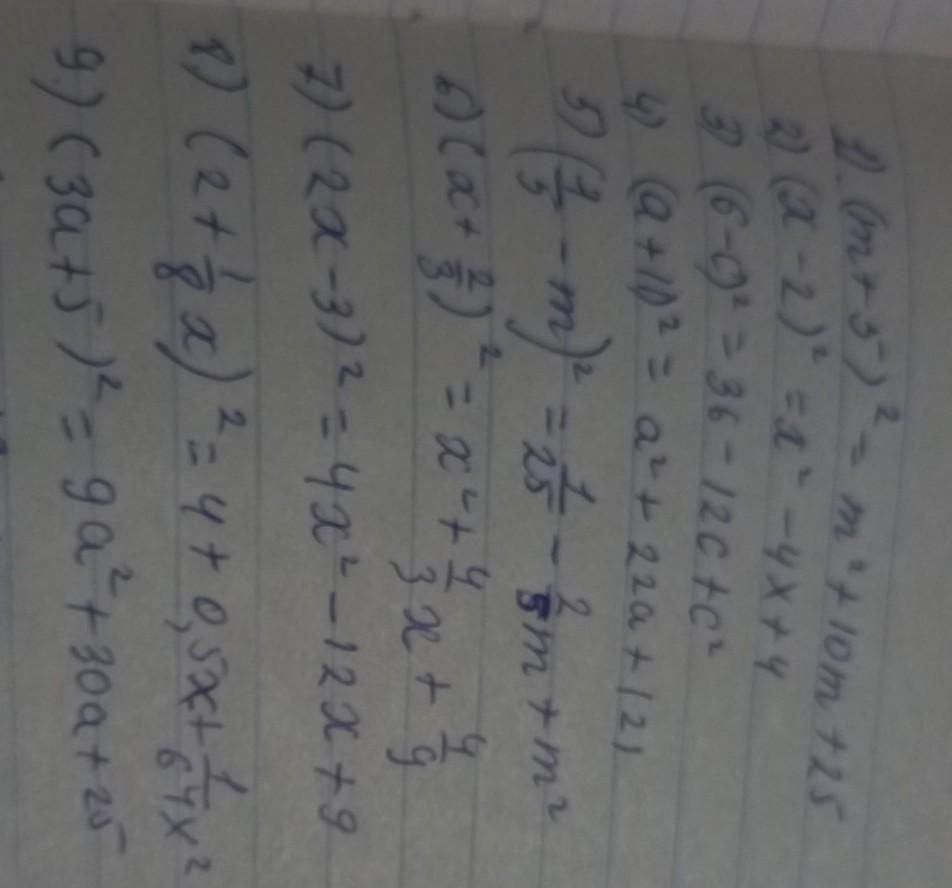 1) (m+5)² = m²+10m+25
2) (x-2)² = x²-4x+4
3) (6-c)² = 36-12c+c²
4) (a+11)² = a²+22a+121
5) (1/5 - m)² = 1/25 - 2/5m+m²
6) (x+2/3)² = x²+4/3x+4/9
7) (2x-3)² = 4x²-12x+9
8) (2+1/8x)² = 4+0,5x+1/64x²
9) (3a+5)² = 9a²+30a+25